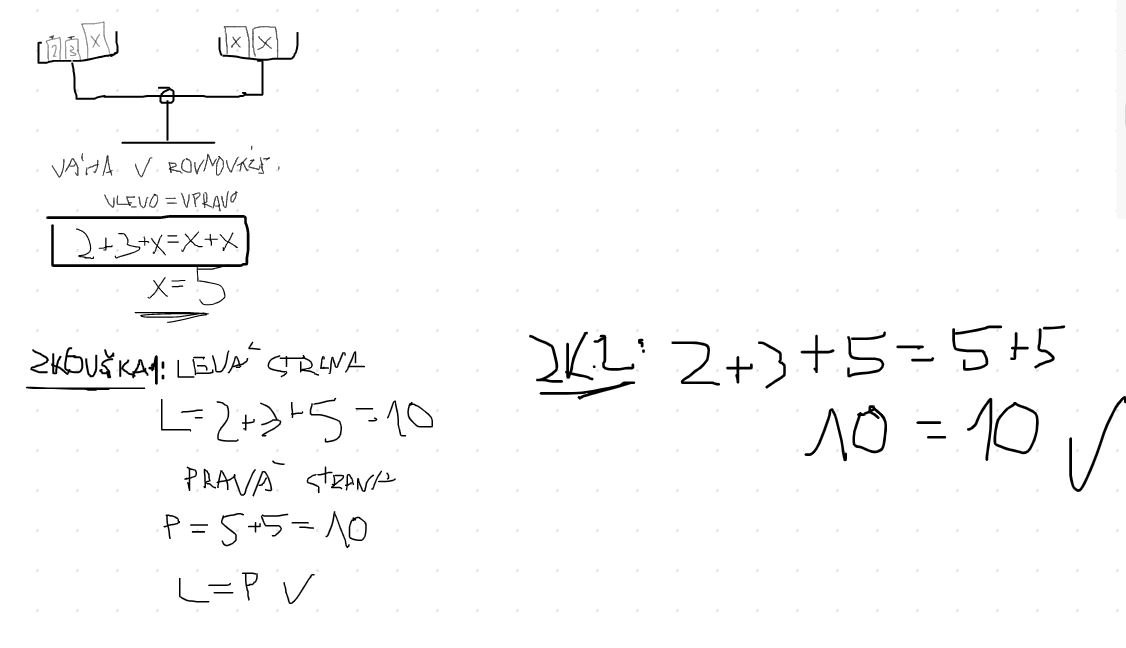 2 3 X X X
VÁHA V ROVNOVÁZE.
VLEVO = VPRAVO
2+3+x=x+x
x=5
ZKOUŠKA1: LEVÁ STRANA
L=2+3+5=10
PRAVÁ STRANA
P=5+5=10
L=P ✓
ZK.2: 2+3+5=5+5
10=10 ✓